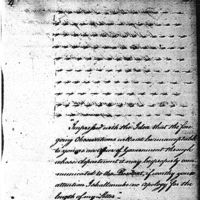 "Impressed with the Idea that the fore
going Observations will not be unacceptable
to you as an Officer of Government through
whose department it may be properly com
municated to the President, if worthy your
attention I shall make no Apology for the
length of my Letter